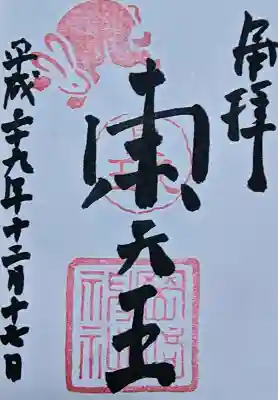 奉拝
東天王
岡﨑神社
平成二十九年十二月十七日